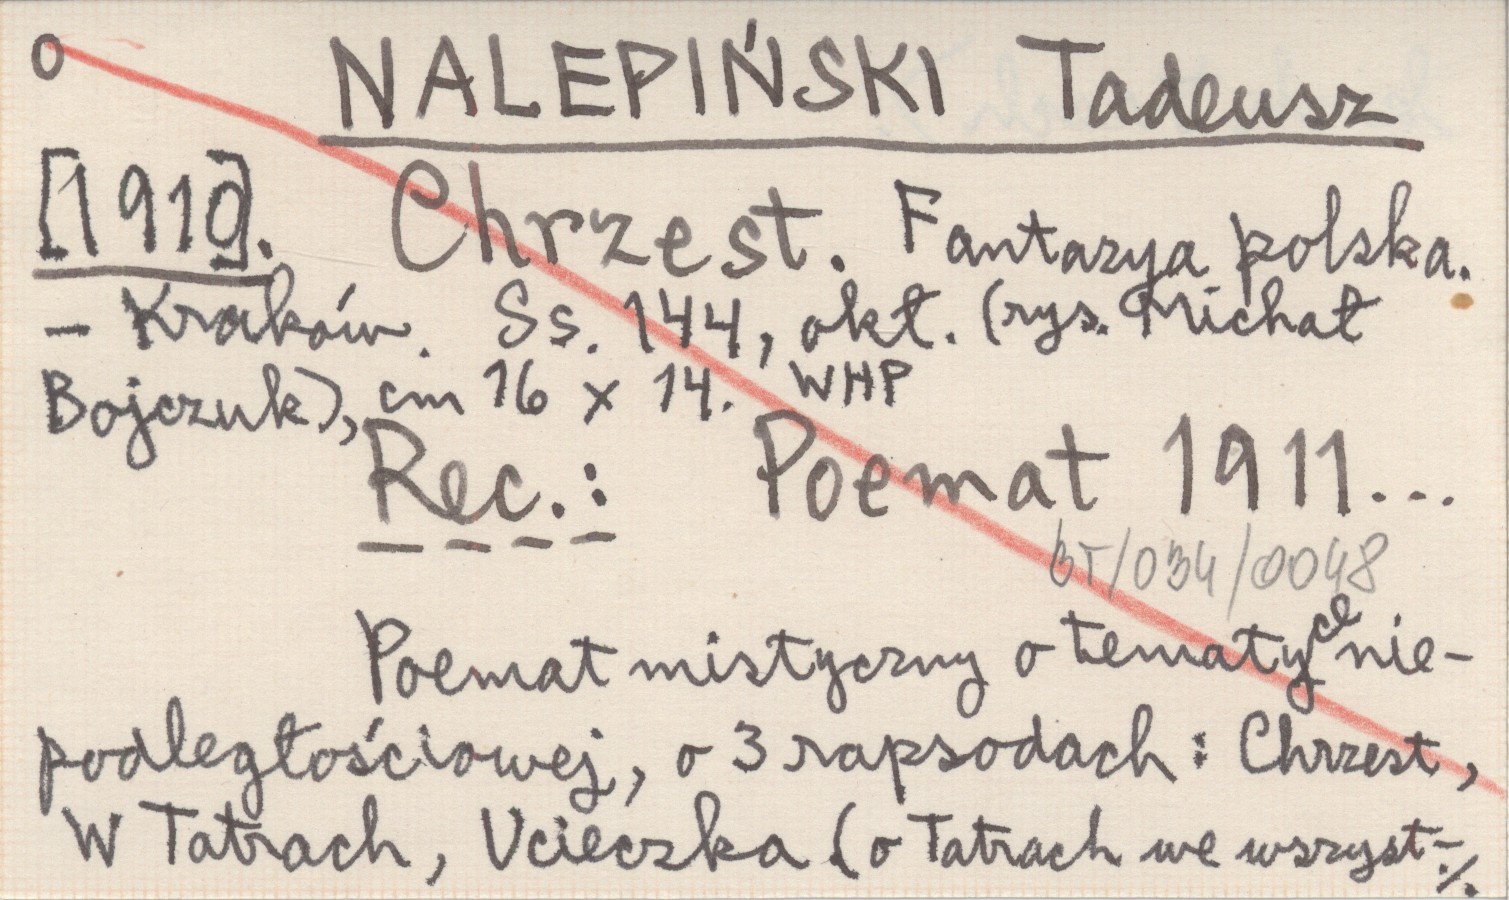 O NALEPIŃSKI Tadeusz
[1910]. Chrzest. Fantazya polska.
- Kraków. Ss. 144, okł. (rys. Michał
Bojczuk), cm 16 x 14. WHP
Rec.: Poemat 1911...
BT/034/0048
Poemat mistyczny o tematyce nie-
podległościowej, o 3 rapsodach: Chrzest,
W Tatrach, Ucieczka (o Tatrach we wszyst-
./.